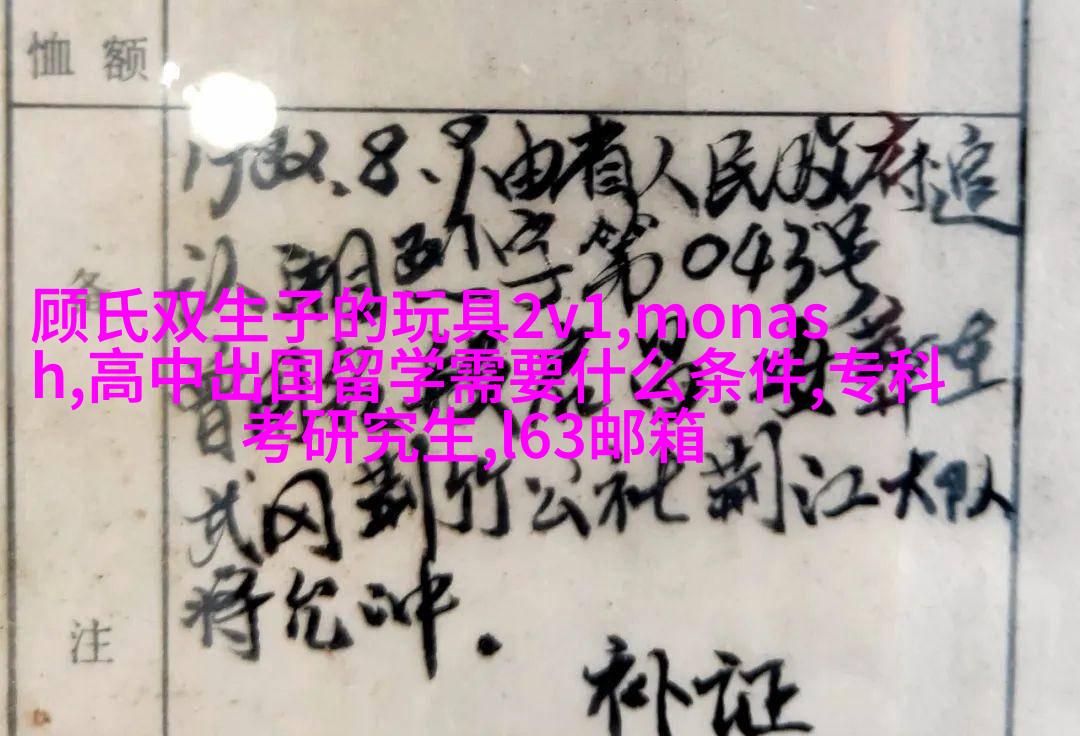 恤额
由省人民政府追
字第043号
备
顾氏双生子的玩具2v1,monas
h,高中出国留学需要什么条件,专科
考研究生,l63邮箱
武冈荆竹公社荆江大队
蒋允冲.
注
补证